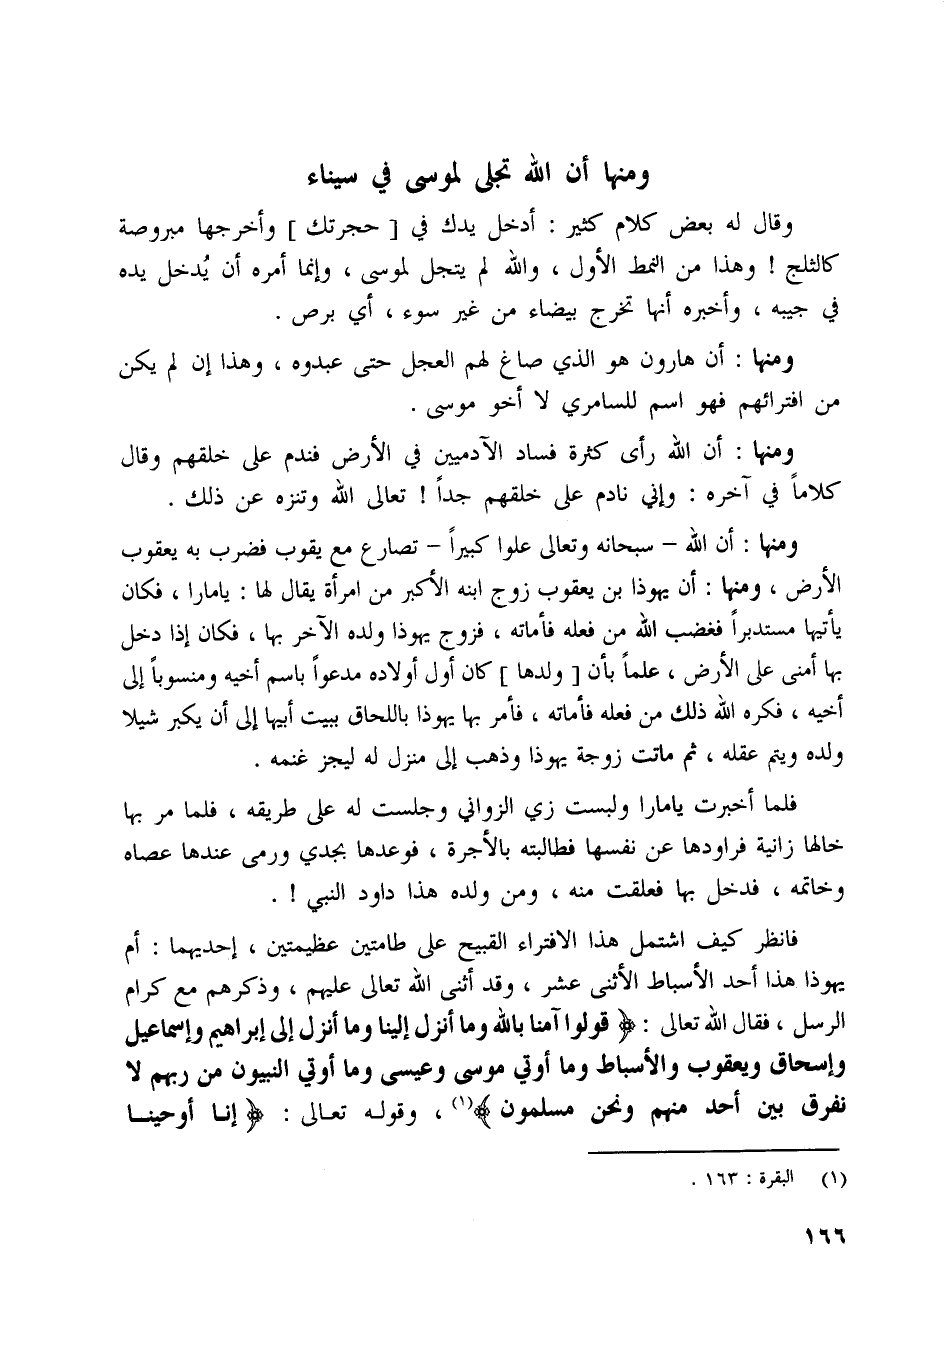 ومنها أن الله تجلى لموسى في سيناء
وقال له بعض كلام كثير : أدخل يدك في [ حجرتك ] وأخرجها مبروصة
كالثلج ! وهذا من النمط الأول ، والله لم يتجل لموسى ، وإنما أمره أن يُدخل يده
في جيبه ، وأخبره أنها تخرج بيضاء من غير سوء ، أي برص .
ومنها : أن هارون هو الذي صاغ لهم العجل حتى عبدوه ، وهذا إن لم يكن
من افترائهم فهو اسم للسامري لا أخو موسى .
ومنها : أن الله رأى كثرة فساد الآدميين في الأرض فندم على خلقهم وقال
كلاماً في آخره : وإني نادم على خلقهم جداً ! تعالى الله وتنزه عن ذلك .
ومنها : أن الله – سبحانه وتعالى علوا كبيراً – تصارع مع يقوب فضرب به يعقوب
الأرض ، ومنها : أن يهوذا بن يعقوب زوج ابنه الأكبر من امرأة يقال لها : يامارا ، فكان
يأتيها مستدبراً فغضب الله من فعله فأماته ، فزوج يهوذا ولده الآخر بها ، فكان إذا دخل
بها أمنى على الأرض ، علماً بأن [ ولدها ] كان أول أولاده مدعواً باسم أخيه ومنسوباً إلى
أخيه ، فكره الله ذلك من فعله فأماته ، فأمر بها يهوذا باللحاق ببيت أبيها إلى أن يكبر شيلا
ولده ويتم عقله ، ثم ماتت زوجة يهوذا وذهب إلى منزل له ليجز غنمه .
فلما أخبرت يامارا ولبست زي الزواني وجلست له على طريقه ، فلما مر بها
خالها زانية فراودها عن نفسها فطالبته بالأجرة ، فوعدها بجدي ورمى عندها عصاه
وخاتمه ، فدخل بها فعلقت منه ، ومن ولده هذا داود النبي ! .
فانظر كيف اشتمل هذا الافتراء القبيح على طامتين عظيمتين ، إحديهما : أم
يهوذا هذا أحد الأسباط الأثنى عشر ، وقد أثنى الله تعالى عليهم ، وذكرهم مع كرام
الرسل ، فقال الله تعالى : ﴿ قولوا آمنا بالله وما أنزل إلينا وما أنزل إلى إبراهيم وإسماعيل
وإسحاق ويعقوب والأسباط وما أوتي موسى وعيسى وما أوتي النبيون من ربهم لا
نفرق بين أحد منهم ونحن مسلمون ﴾(١) ، وقوله تعالى : ﴿ إنا أوحينا
(١) البقرة : ١٦٣ .
١٦٦